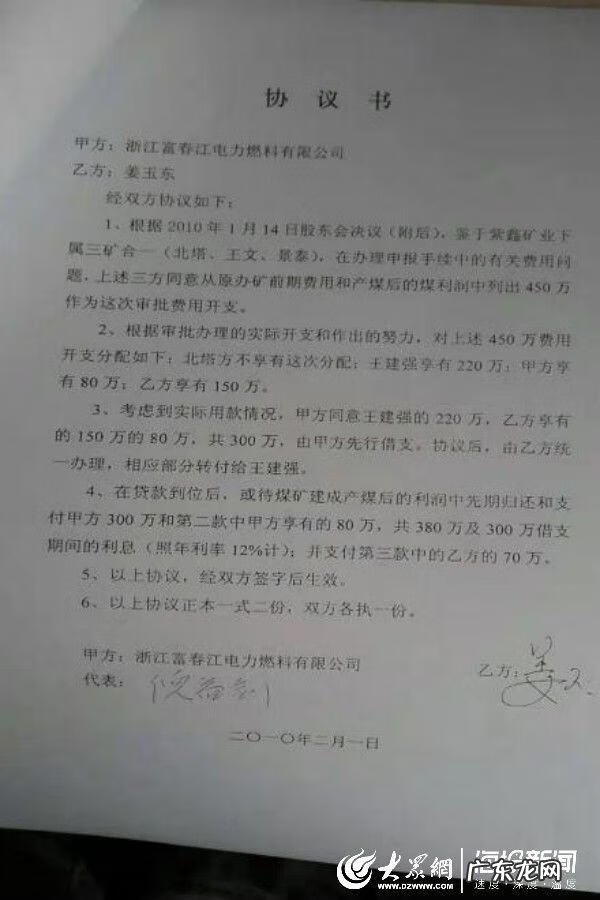 协 议 书
甲方：浙江富春江电力燃料有限公司
乙方：姜玉东
经双方协议如下：
1、根据 2010 年 1 月 14 日股东会决议（附后），鉴于紫鑫矿业下
属三矿合一（北塔、王文、景泰），在办理申报手续中的有关费用问
题，上述三方同意从原办矿前期费用和产煤后的煤利润中列出 450 万
作为这次审批费用开支。
2、根据审批办理的实际开支和作出的努力，对上述 450 万费用
开支分配如下：北塔方不享有这次分配；王建强享有 220 万；甲方享
有 80 万；乙方享有 150 万。
3、考虑到实际用款情况，甲方同意王建强的 220 万，乙方享有
的 150 万的 80 万，共 300 万，由甲方先行借支。协议后，由乙方统
一办理，相应部分转付给王建强。
4、在贷款到位后，或待煤矿建成产煤后的利润中先期归还和支
付甲方 300 万和第二款中甲方享有的 80 万，共 380 万及 300 万借支
期间的利息（照年利率 12%计）；并支付第三款中的乙方的 70 万。
5、以上协议，经双方签字后生效。
6、以上协议正本一式二份，双方各执一份。
甲方：浙江富春江电力燃料有限公司
代表：
乙方：姜
二〇一〇年二月一日
大众網
www.dzwww.com
海报新闻
速度·深度·温度
广东龙网